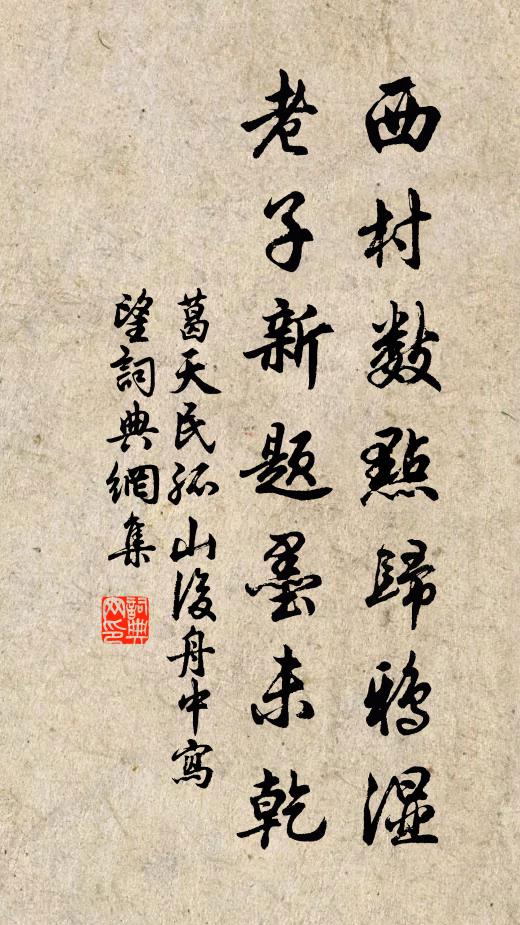 西村數點歸鴉濕
老子新題墨未乾
葛天民孤山後舟中寫
望詞典網集
詞典
网印